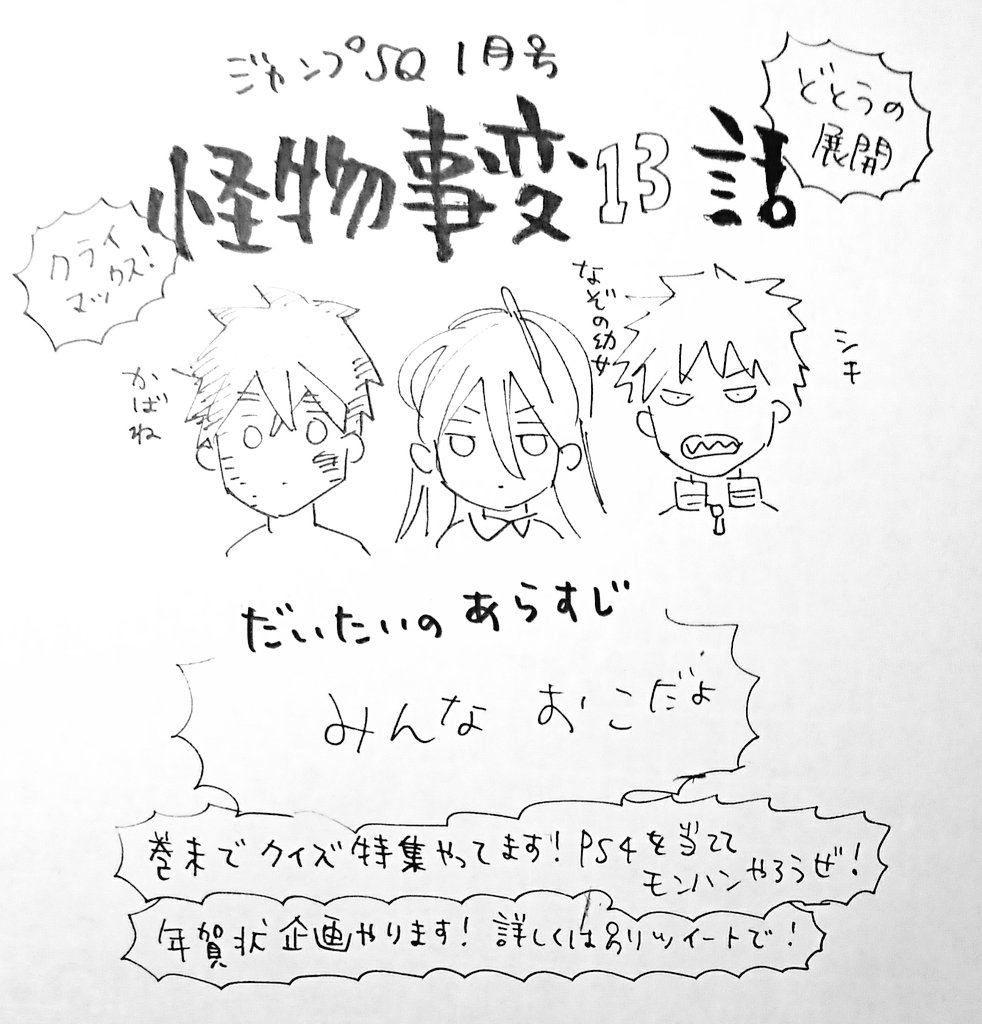 ジャンプSQ 1月号
どとうの
展開
怪物事変13話
クライ
マックス!
かばね
なぞの幼女
シキ
だいたいのあらすじ
みんな おこだよ
巻末でクイズ特集やってます! PS4を当てて
モンハンやろうぜ!
年賀状企画やります! 詳しくは別ツイートで!